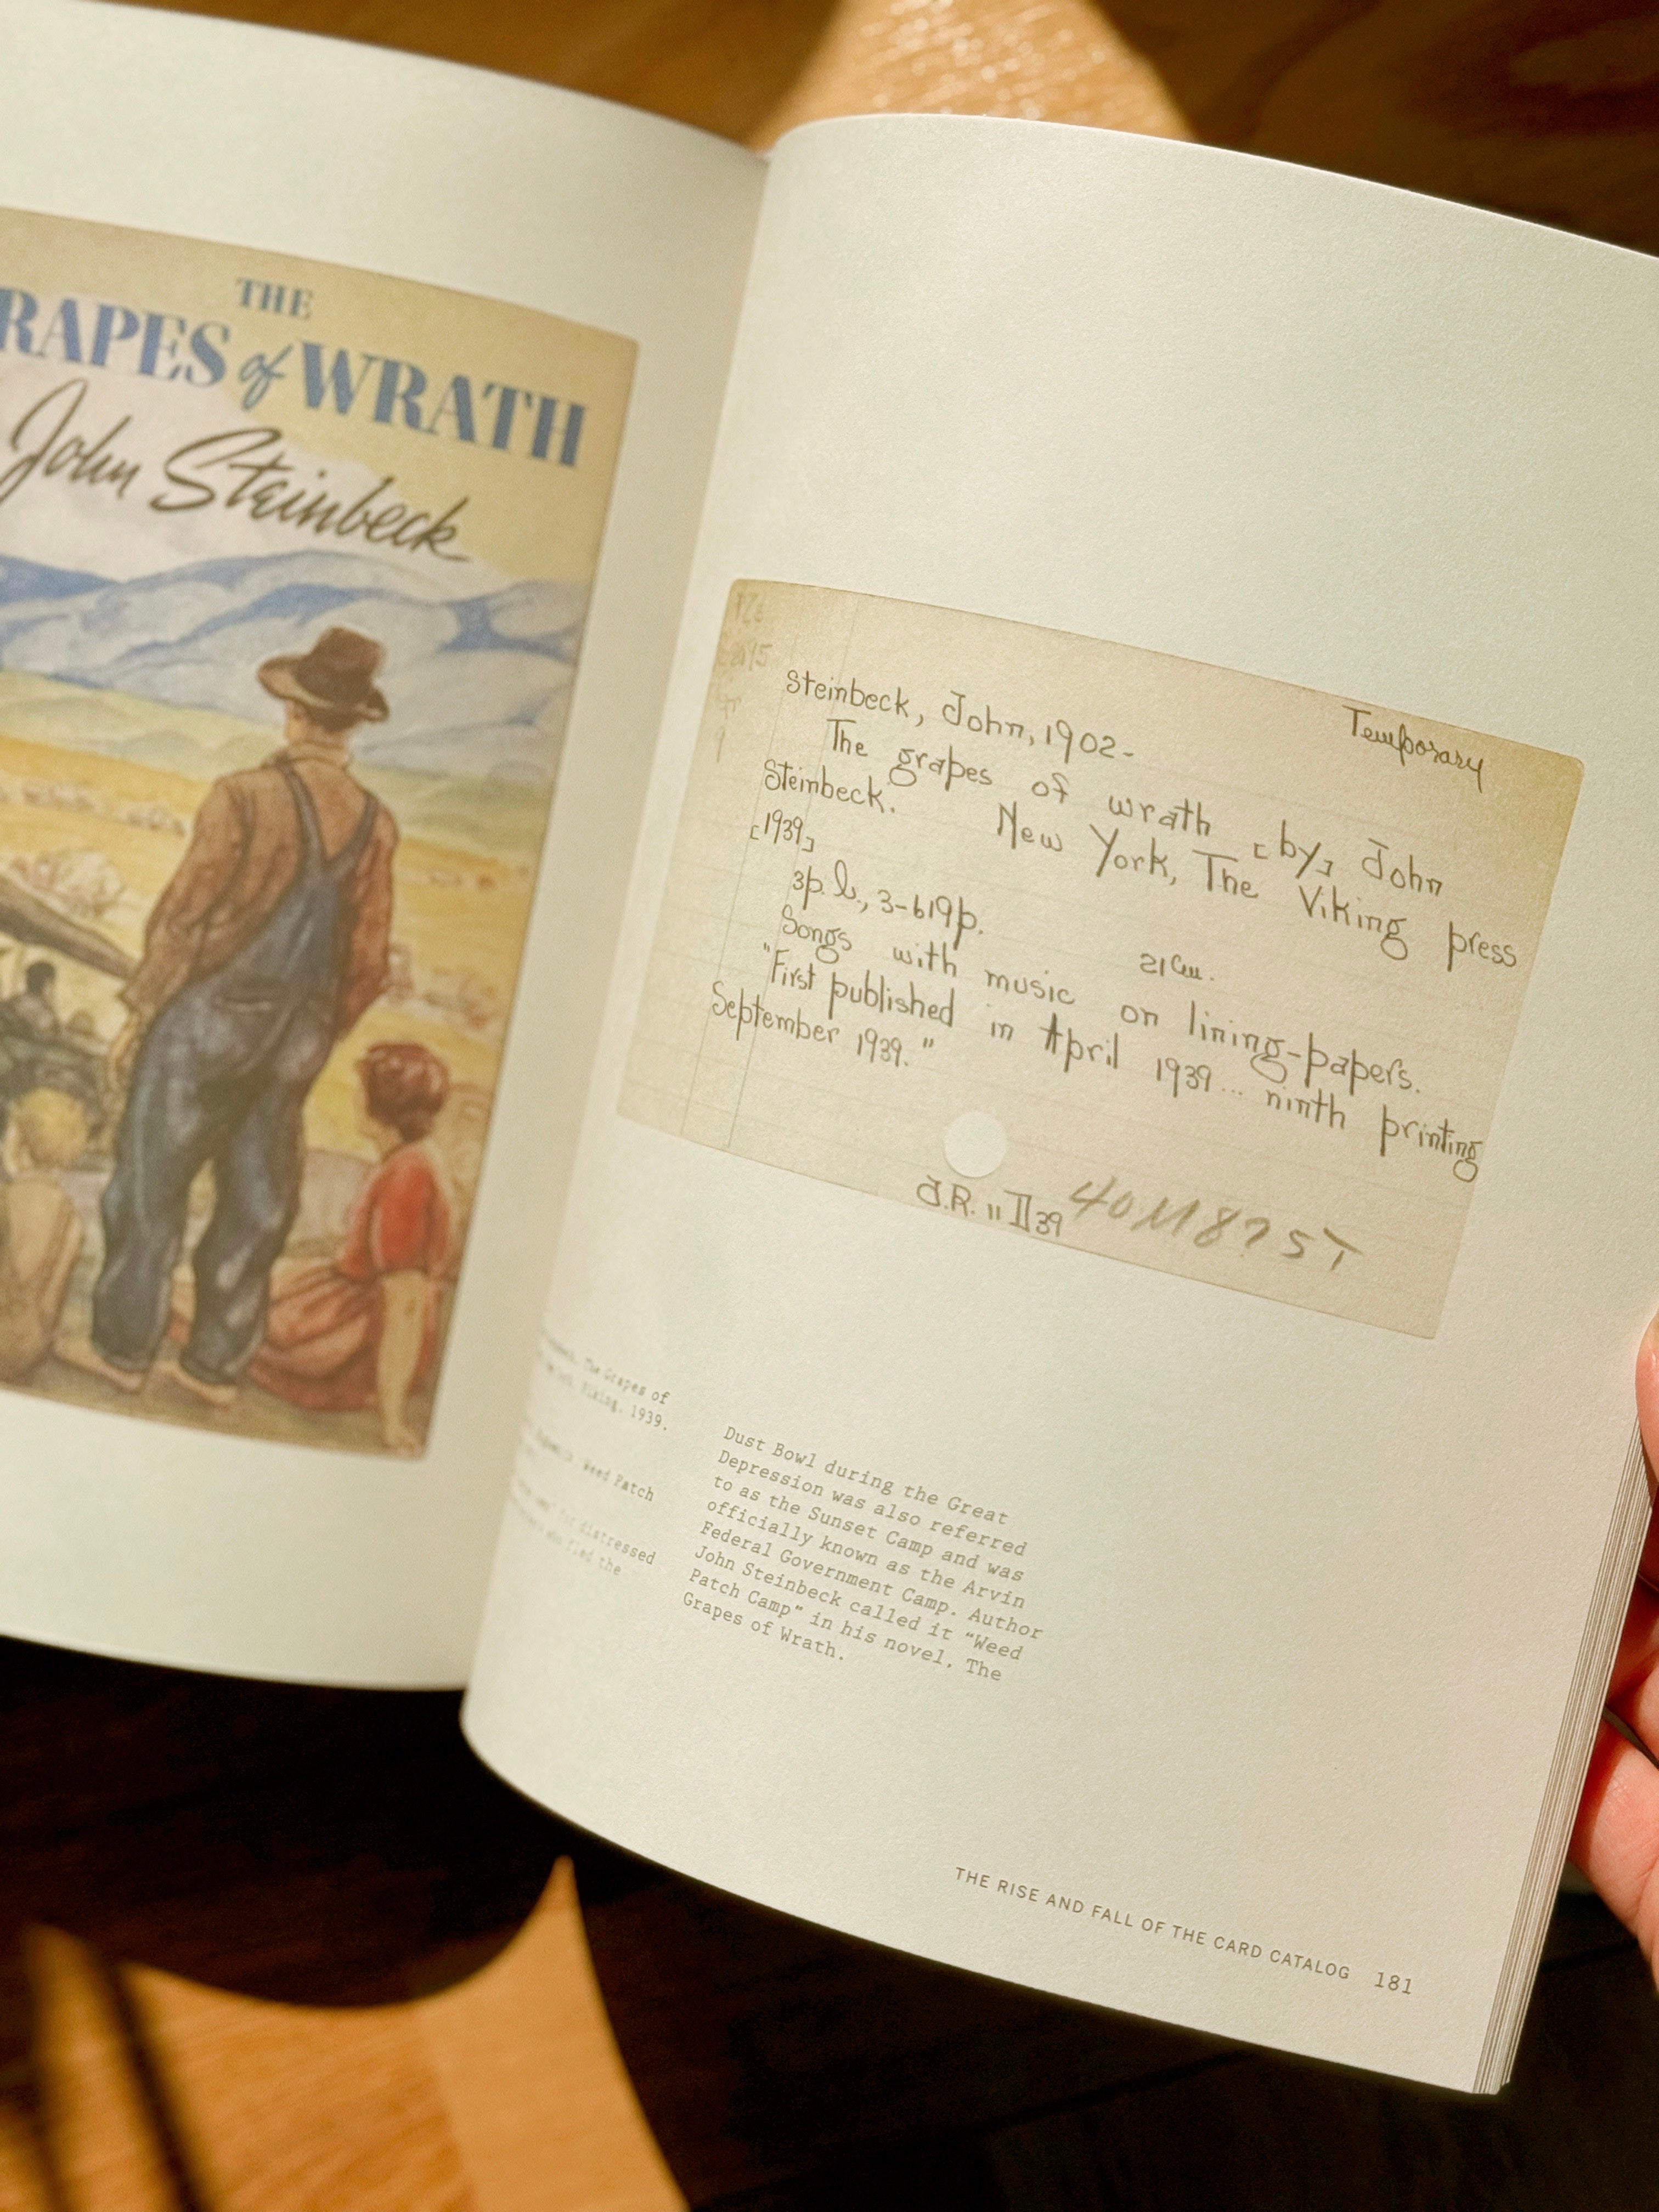 THE
RAPES of WRATH
John Steinbeck
Temporary
Steinbeck, John, 1902-
The grapes of wrath [by] John
Steinbeck. New York, The Viking press
[1939]
3p.l., 3-619p. 21cm.
Songs with music on lining-papers.
"First published in April 1939... ninth printing
September 1939."
J.R. 11 II 39 40M875T
The Grapes of
Viking, 1939.
Weed Patch
distressed
who fled the
Dust Bowl during the Great
Depression was also referred
to as the Sunset Camp and was
officially known as the Arvin
Federal Government Camp. Author
John Steinbeck called it "Weed
Patch Camp" in his novel, The
Grapes of Wrath.
THE RISE AND FALL OF THE CARD CATALOG 181